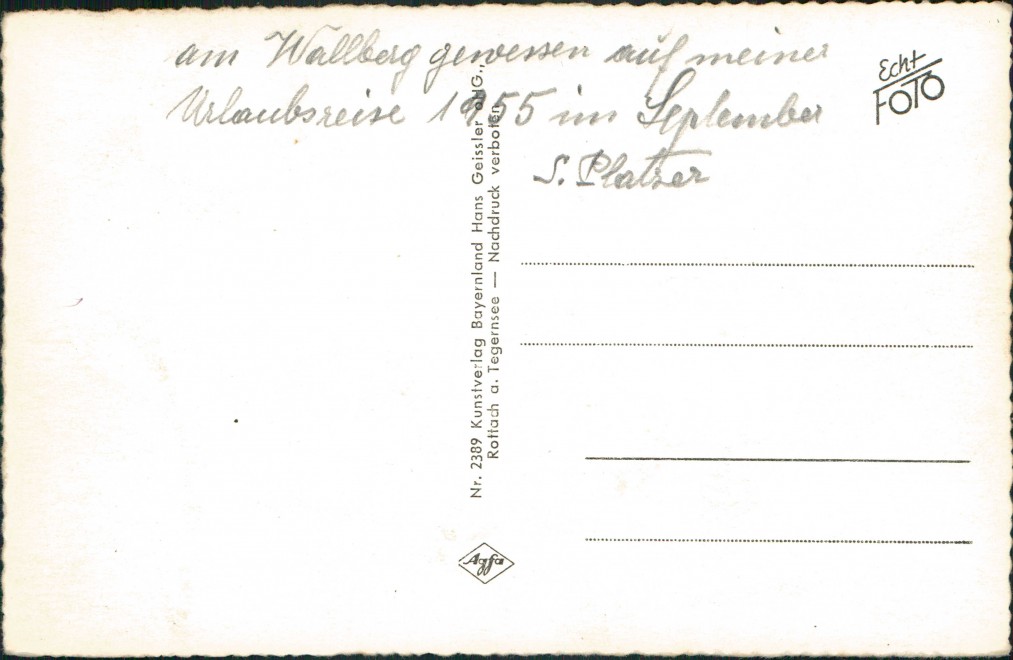 am Wallberg gewesen auf meiner
Urlaubsreise 1955 im September
S. Platzer
Echt
FOTO
Nr. 2389 Kunstverlag Bayernland Hans Geissler oHG.,
Rottach a. Tegernsee — Nachdruck verboten
Agfa